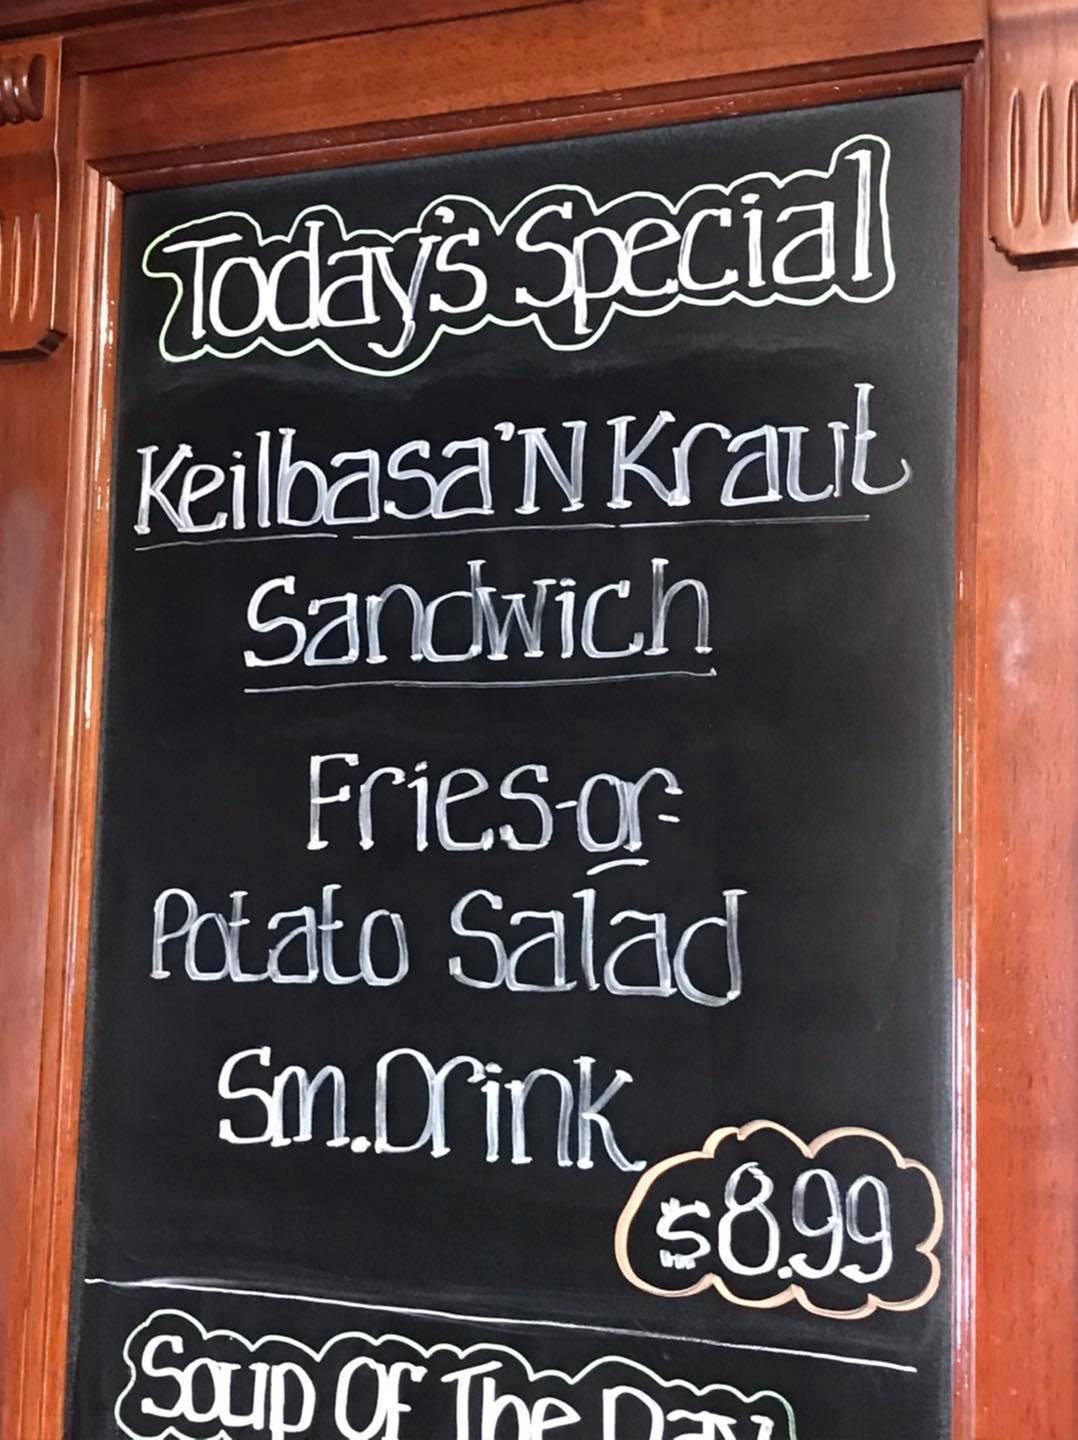 Today's Special
Keilbasa'N Kraut
Sandwich
Fries-or-
Potato Salad
Sm.Drink
$8.99
Soup Of The Day